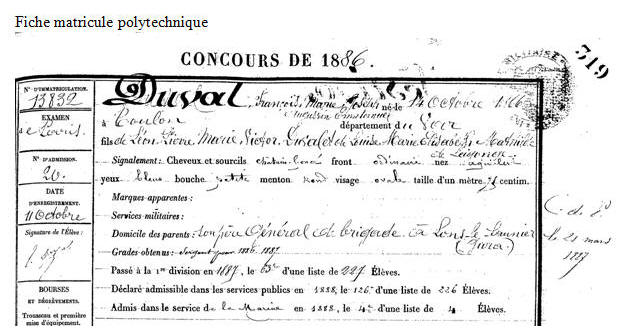 Fiche matricule polytechnique
CONCOURS DE 1886.
319
N° D'IMMATRICULATION.
13832
EXAMEN
de Paris.
N° D'ADMISSION.
20.
DATE
D'ENREGISTREMENT.
11 Octobre
Signature de l'Élève:
BOURSES
ET DÉGRÈVEMENTS.
Trousseau et première
mise d'équipement.
Duval, François Marie né le 14 Octobre
à Toulon département du Var
fils de Léon Pierre Marie Victor Duval et de Louise Marie
Signalement: Cheveux et sourcils front ordinaire nez aquilin
yeux bleus bouche petite menton rond visage ovale taille d'un mètre 71 centim.
Marques apparentes:
Services militaires:
Domicile des parents: son père Général de brigade à Lons-le-Saunier
(Jura)
Grades obtenus: 1886.1887
Passé à la 1re division en 1887, le d'une liste de 227 Élèves.
Déclaré admissible dans les services publics en 1888, le 126e d'une liste de 226 Élèves.
Admis dans le service de la Marine en 1888, le 4e d'une liste de 4 Élèves.
le 21 mars
1887